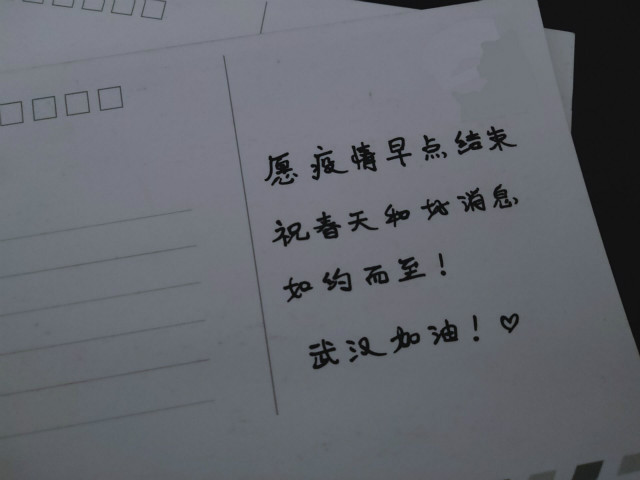 愿疫情早点结束
祝春天和好消息
如约而至!
武汉加油!♡